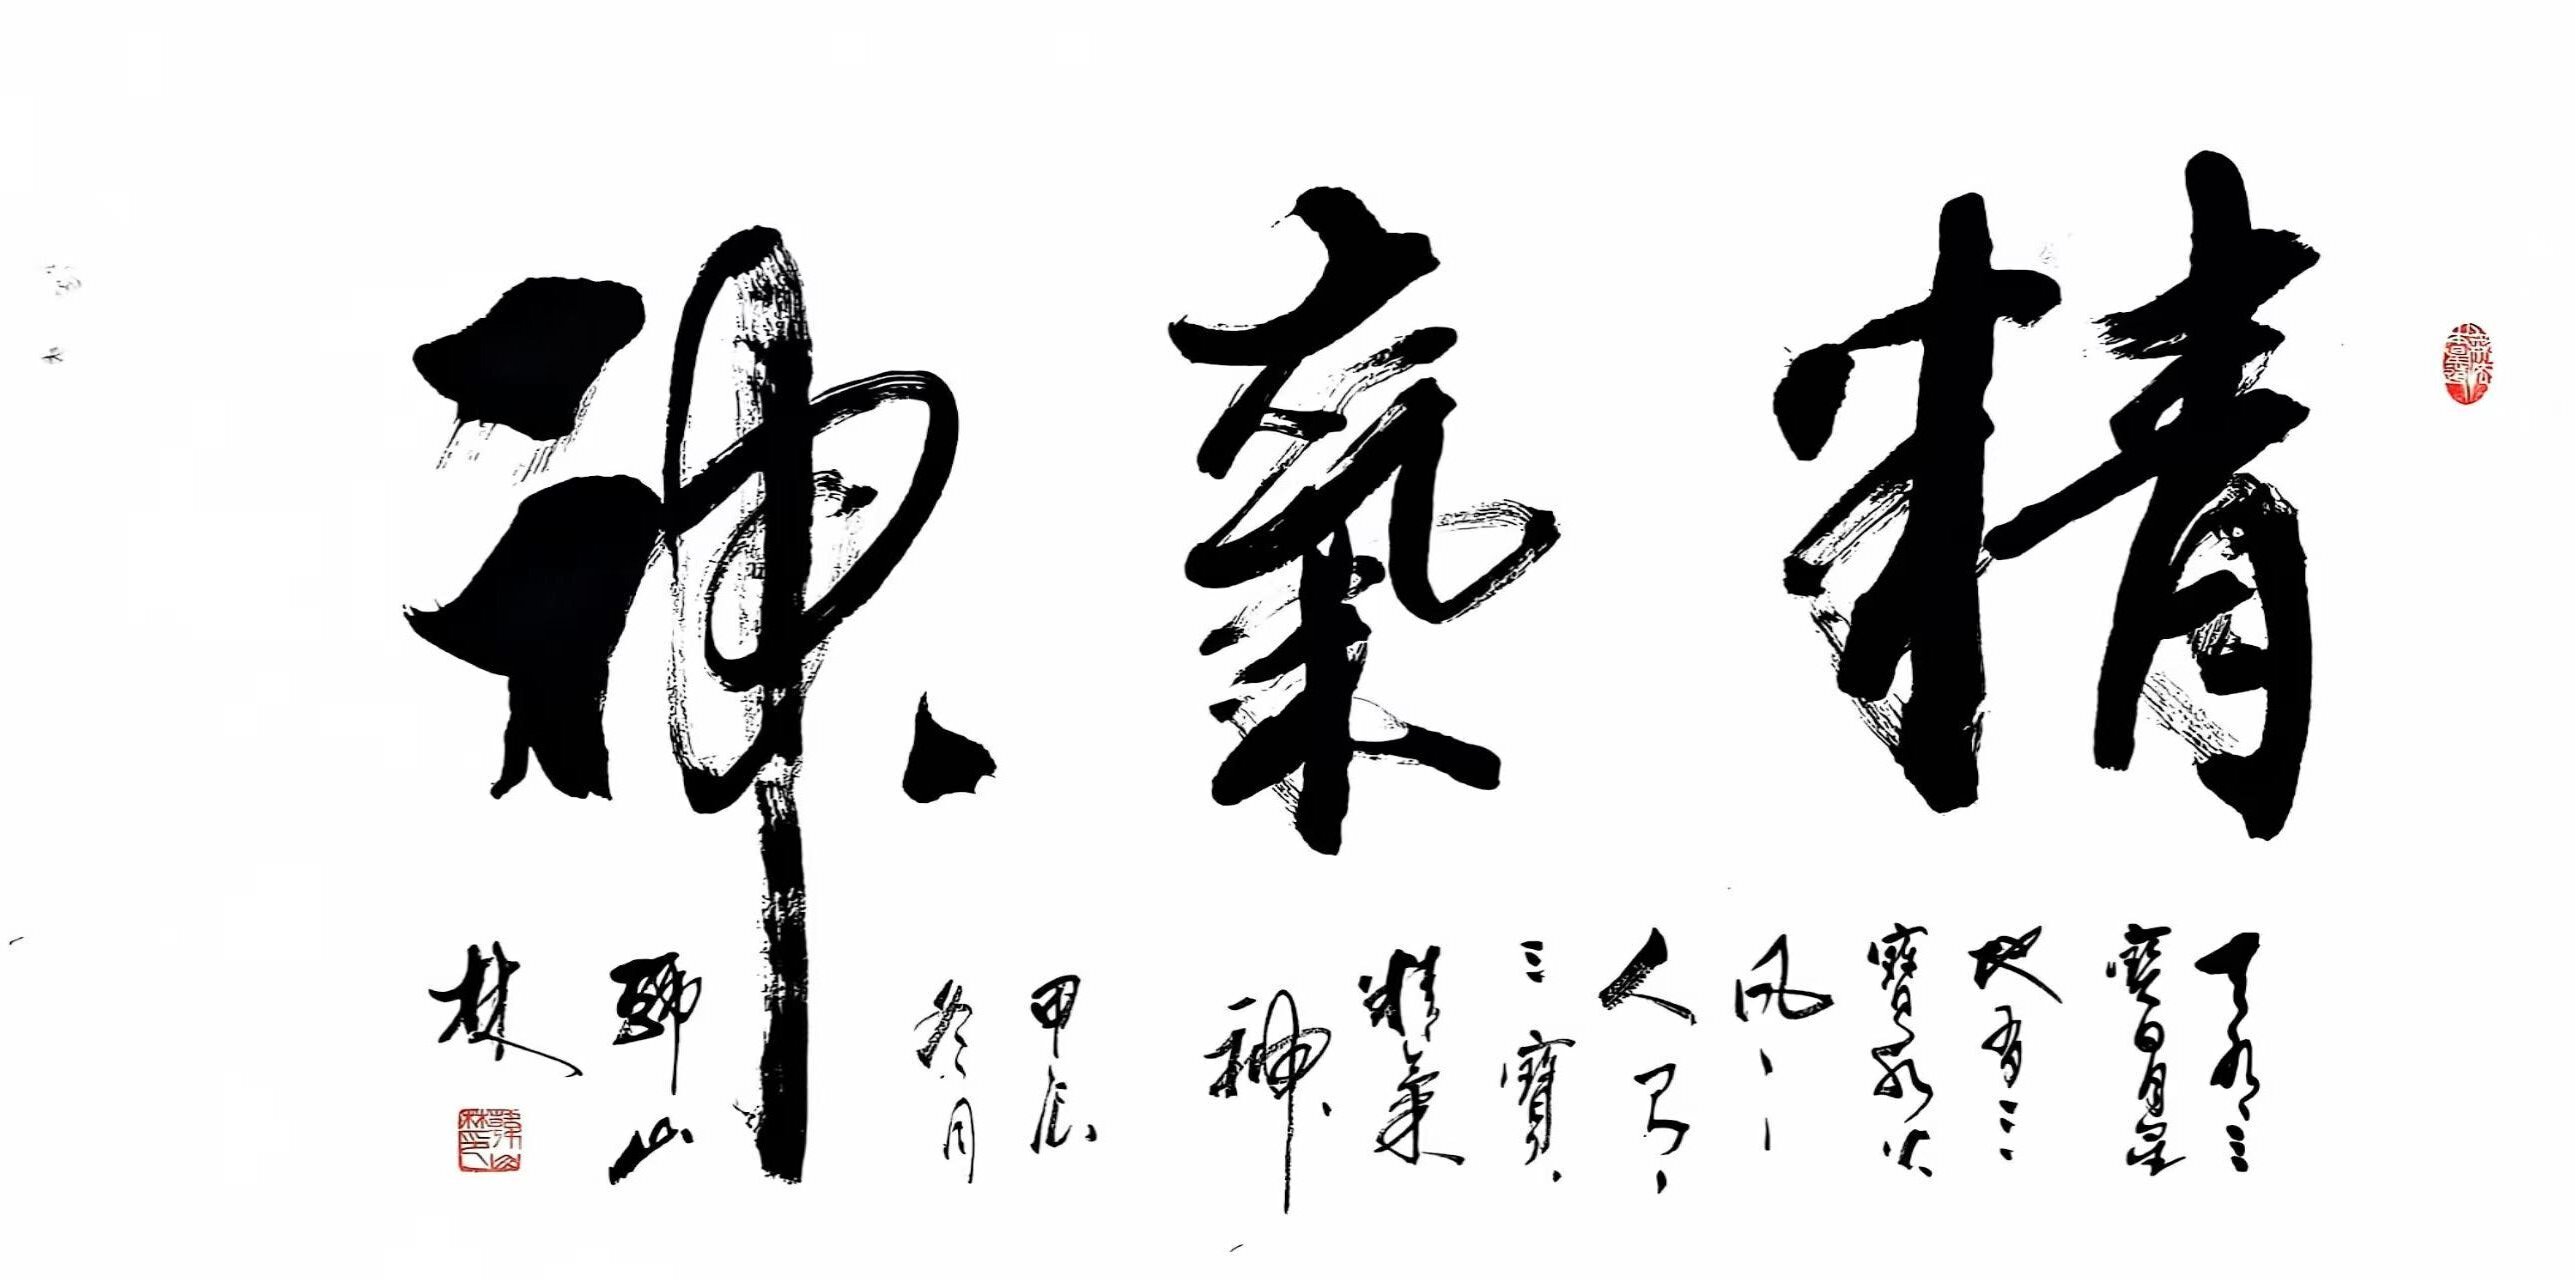 精氣神
天有三
寶日月星
地有三
寶水火
风
人有
三寶
精氣
神
甲辰
冬月
韩山
林
韓山林印